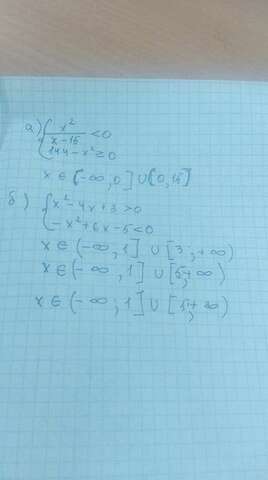 а) { x²/(x-15) <0
144-x²≥0
x ∈ (-∞,0] ∪ [0,15]
б) { x²-4x+3>0
-x²+6x-5<0
x ∈ (-∞,1] ∪ [3;+∞)
x ∈ (-∞,1] ∪ [5;+∞)
x ∈ (-∞;1] ∪ [5;+∞)